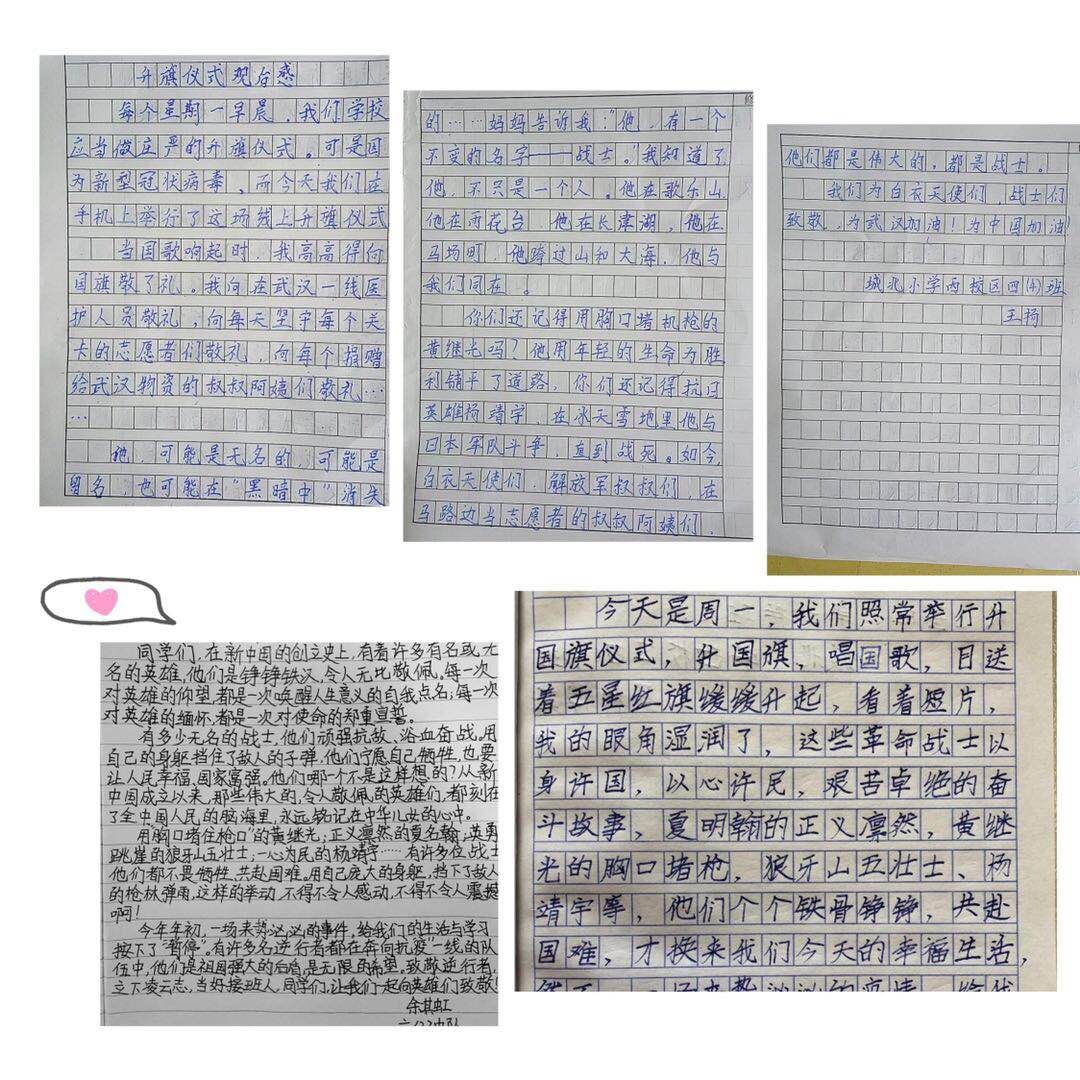 升旗仪式观后感
每个星期一早晨,我们学校
应当做庄严的升旗仪式。可是因
为新型冠状病毒,所今天我们在
手机上举行了这场线上升旗仪式
当国歌响起时,我高高得向
国旗敬了礼。我向在武汉一线医
护人员敬礼,向每天坚守每个关
卡的志愿者们敬礼,向每个捐赠
给武汉物资的叔叔阿姨们敬礼……
……
他,可能是无名的,可能是
留名,也可能在“黑暗中”消失
的……妈妈告诉我:“他,有一个
不变的名字——战士。”我知道了
他,不只是一个人。他在歌乐山,
他在雨花台,他在长津湖,他在
马场町,他跨过山和大海,他与
我们同在。
你们还记得用胸口堵机枪的
黄继光吗?他用年轻的生命为胜
利铺平了道路,你们还记得抗日
英雄杨靖宇,在冰天雪地里他与
日本军队斗争,直到战死。如今,
白衣天使们,解放军叔叔们,在
马路边当志愿者的叔叔阿姨们,
他们都是伟大的,都是战士。
我们为白衣天使们,战士们
致敬,为武汉加油!为中国加油!
城北小学西校区四(4)班
王扬
同学们,在新中国的创立史上,有着许多有名或无
名的英雄,他们是铮铮铁汉,令人无比敬佩。每一次
对英雄的仰望,都是一次唤醒人生意义的自我点名;每一次
对英雄的缅怀,都是一次对使命的郑重宣誓。
有多少无名的战士,他们顽强抗敌、浴血奋战。用
自己的身躯挡住了敌人的子弹,他们宁愿自己牺牲,也要
让人民幸福,国家富强,他们哪一个不是这样想的?从新
中国成立以来,那些伟大的,令人敬佩的英雄们,都刻在
了全中国人民的脑海里,永远铭记在中华儿女的心中。
用胸口堵住枪口的黄继光,正义凛然的夏名翰,英勇
跳崖的狼牙山五壮士,一心为民的杨靖宇……有许多位战士
他们都不畏牺牲,共赴国难。用自己庞大的身躯,挡下了敌人
的枪林弹雨,这样的举动,不得不令人感动,不得不令人震撼
啊!
今年年初,一场来势汹汹的事件,给我们的生活与学习
按下了“暂停”。有许多名逆行者都在奔向抗疫一线的队
伍中,他们是祖国强大的后盾,是无限的希望。致敬逆行者,
立下凌云志,当好接班人,同学们,让我们一起向英雄们致敬!
余其虹
今天是周一,我们照常举行升
国旗仪式,升国旗,唱国歌,目送
着五星红旗缓缓升起,看着短片,
我的眼角湿润了,这些革命战士以
身许国,以心许民,艰苦卓绝的奋
斗故事,夏明翰的正义凛然,黄继
光的胸口堵枪,狼牙山五壮士、杨
靖宇等,他们个个铁骨铮铮,共赴
国难,才换来我们今天的幸福生活,